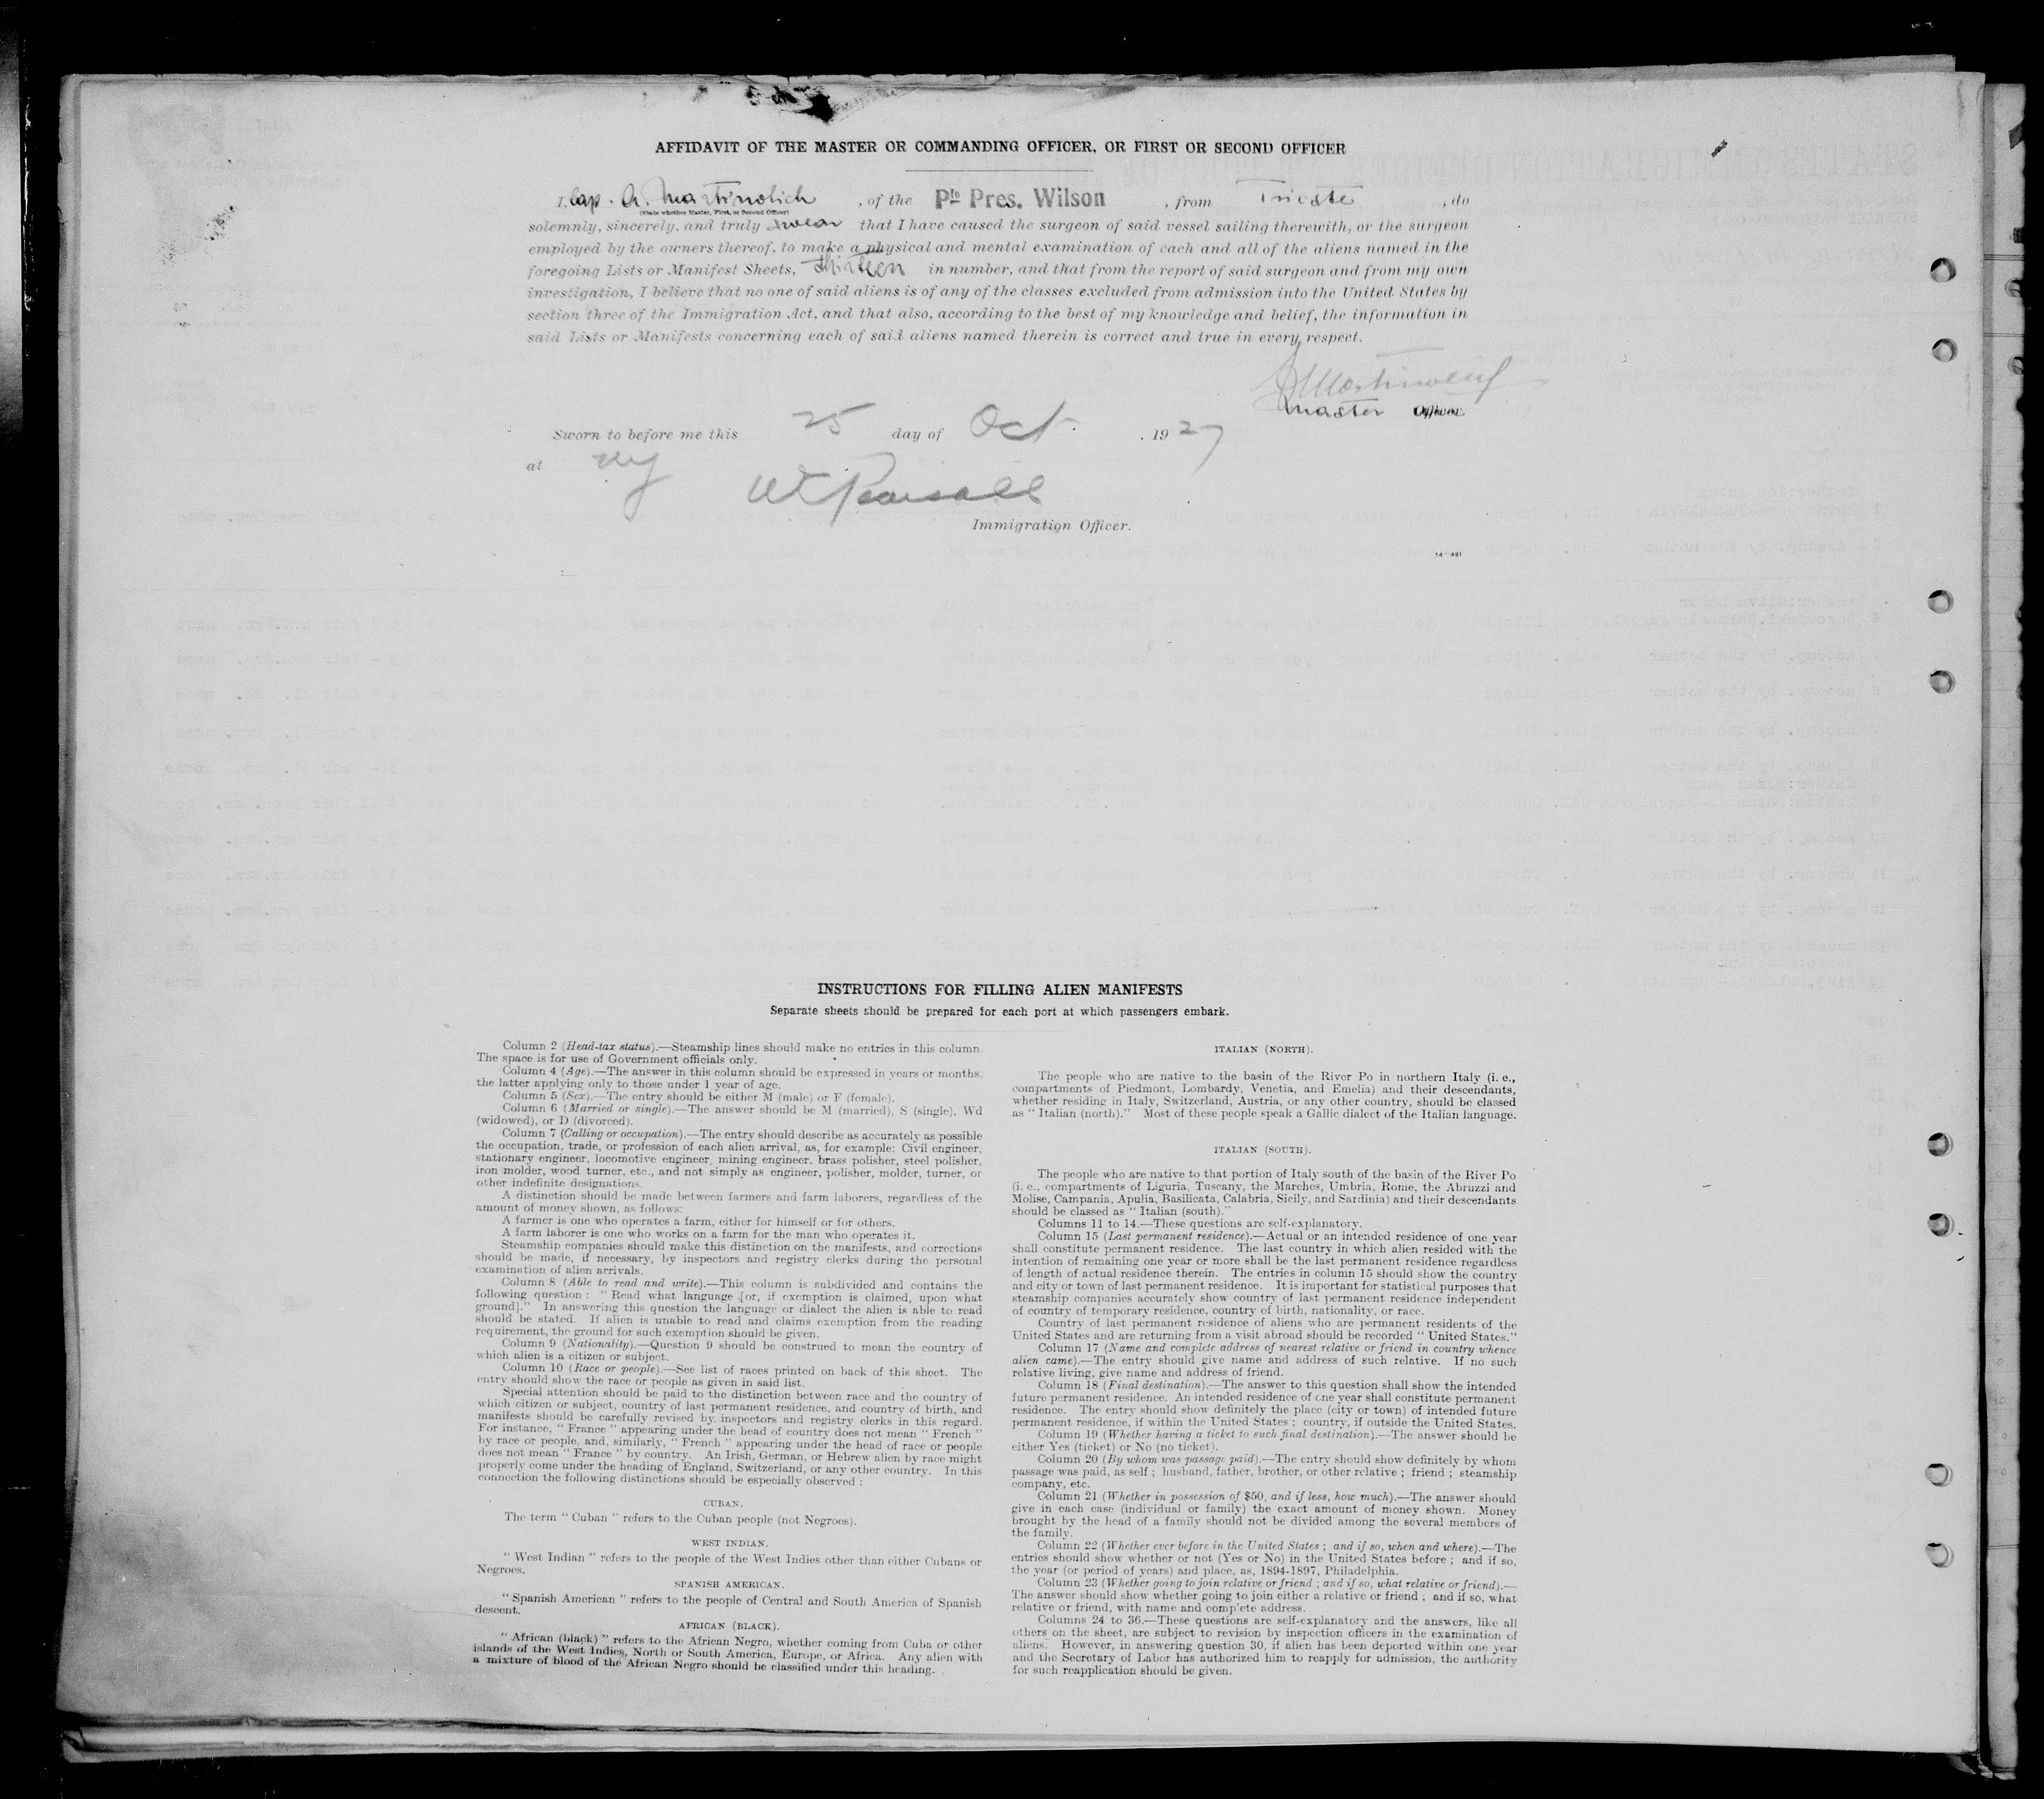 AFFIDAVIT OF THE MASTER OR COMMANDING OFFICER, OR FIRST OR SECOND OFFICER
I, Cap. A. Martinolich, of the Pte Pres. Wilson, from Trieste, do
(State whether Master, First, or Second Officer)
solemnly, sincerely, and truly swear that I have caused the surgeon of said vessel sailing therewith, or the surgeon
employed by the owners thereof, to make a physical and mental examination of each and all of the aliens named in the
foregoing Lists or Manifest Sheets, thirteen in number, and that from the report of said surgeon and from my own
investigation, I believe that no one of said aliens is of any of the classes excluded from admission into the United States by
section three of the Immigration Act, and that also, according to the best of my knowledge and belief, the information in
said Lists or Manifests concerning each of said aliens named therein is correct and true in every respect.
Master Officer
Sworn to before me this 25 day of Oct. , 1927
at NY
Immigration Officer.
14—491
INSTRUCTIONS FOR FILLING ALIEN MANIFESTS
Separate sheets should be prepared for each port at which passengers embark.
Column 2 (Head-tax status).—Steamship lines should make no entries in this column.
The space is for use of Government officials only.
Column 4 (Age).—The answer in this column should be expressed in years or months,
the latter applying only to those under 1 year of age.
Column 5 (Sex).—The entry should be either M (male) or F (female).
Column 6 (Married or single).—The answer should be M (married), S (single), Wd
(widowed), or D (divorced).
Column 7 (Calling or occupation).—The entry should describe as accurately as possible
the occupation, trade, or profession of each alien arrival, as, for example: Civil engineer,
stationary engineer, locomotive engineer, mining engineer, brass polisher, steel polisher,
iron molder, wood turner, etc., and not simply as engineer, polisher, molder, turner, or
other indefinite designations.
A distinction should be made between farmers and farm laborers, regardless of the
amount of money shown, as follows:
A farmer is one who operates a farm, either for himself or for others.
A farm laborer is one who works on a farm for the man who operates it.
Steamship companies should make this distinction on the manifests, and corrections
should be made, if necessary, by inspectors and registry clerks during the personal
examination of alien arrivals.
Column 8 (Able to read and write).—This column is subdivided and contains the
following question: "Read what language [or, if exemption is claimed, upon what
ground]." In answering this question the language or dialect the alien is able to read
should be stated. If alien is unable to read and claims exemption from the reading
requirement, the ground for such exemption should be given.
Column 9 (Nationality).—Question 9 should be construed to mean the country of
which alien is a citizen or subject.
Column 10 (Race or people).—See list of races printed on back of this sheet. The
entry should show the race or people as given in said list.
Special attention should be paid to the distinction between race and the country of
which citizen or subject, country of last permanent residence, and country of birth, and
manifests should be carefully revised by inspectors and registry clerks in this regard.
For instance, "France" appearing under the head of country does not mean "French"
by race or people, and, similarly, "French" appearing under the head of race or people
does not mean "France" by country. An Irish, German, or Hebrew alien by race might
properly come under the heading of England, Switzerland, or any other country. In this
connection the following distinctions should be especially observed:
CUBAN.
The term "Cuban" refers to the Cuban people (not Negroes).
WEST INDIAN.
"West Indian" refers to the people of the West Indies other than either Cubans or
Negroes.
SPANISH AMERICAN.
"Spanish American" refers to the people of Central and South America of Spanish
descent.
AFRICAN (BLACK).
"African (black)" refers to the African Negro, whether coming from Cuba or other
islands of the West Indies, North or South America, Europe, or Africa. Any alien with
a mixture of blood of the African Negro should be classified under this heading.
ITALIAN (NORTH).
The people who are native to the basin of the River Po in northern Italy (i. e.,
compartments of Piedmont, Lombardy, Venetia, and Emelia) and their descendants,
whether residing in Italy, Switzerland, Austria, or any other country, should be classed
as "Italian (north)." Most of these people speak a Gallic dialect of the Italian language.
ITALIAN (SOUTH).
The people who are native to that portion of Italy south of the basin of the River Po
(i. e., compartments of Liguria, Tuscany, the Marches, Umbria, Rome, the Abruzzi and
Molise, Campania, Apulia, Basilicata, Calabria, Sicily, and Sardinia) and their descendants
should be classed as "Italian (south)."
Columns 11 to 14.—These questions are self-explanatory.
Column 15 (Last permanent residence).—Actual or an intended residence of one year
shall constitute permanent residence. The last country in which alien resided with the
intention of remaining one year or more shall be the last permanent residence regardless
of length of actual residence therein. The entries in column 15 should show the country
and city or town of last permanent residence. It is important for statistical purposes that
steamship companies accurately show country of last permanent residence independent
of country of temporary residence, country of birth, nationality, or race.
Country of last permanent residence of aliens who are permanent residents of the
United States and are returning from a visit abroad should be recorded "United States."
Column 17 (Name and complete address of nearest relative or friend in country whence
alien came).—The entry should give name and address of such relative. If no such
relative living, give name and address of friend.
Column 18 (Final destination).—The answer to this question shall show the intended
future permanent residence. An intended residence of one year shall constitute permanent
residence. The entry should show definitely the place (city or town) of intended future
permanent residence, if within the United States; country, if outside the United States.
Column 19 (Whether having a ticket to such final destination).—The answer should be
either Yes (ticket) or No (no ticket).
Column 20 (By whom was passage paid).—The entry should show definitely by whom
passage was paid, as self; husband, father, brother, or other relative; friend; steamship
company, etc.
Column 21 (Whether in possession of $50, and if less, how much).—The answer should
give in each case (individual or family) the exact amount of money shown. Money
brought by the head of a family should not be divided among the several members of
the family.
Column 22 (Whether ever before in the United States; and if so, when and where).—The
entries should show whether or not (Yes or No) in the United States before; and if so,
the year (or period of years) and place, as, 1894-1897, Philadelphia.
Column 23 (Whether going to join relative or friend; and if so, what relative or friend).—
The answer should show whether going to join either a relative or friend; and if so, what
relative or friend, with name and complete address.
Columns 24 to 36.—These questions are self-explanatory and the answers, like all
others on the sheet, are subject to revision by inspection officers in the examination of
aliens. However, in answering question 30, if alien has been deported within one year
and the Secretary of Labor has authorized him to reapply for admission, the authority
for such reapplication should be given.